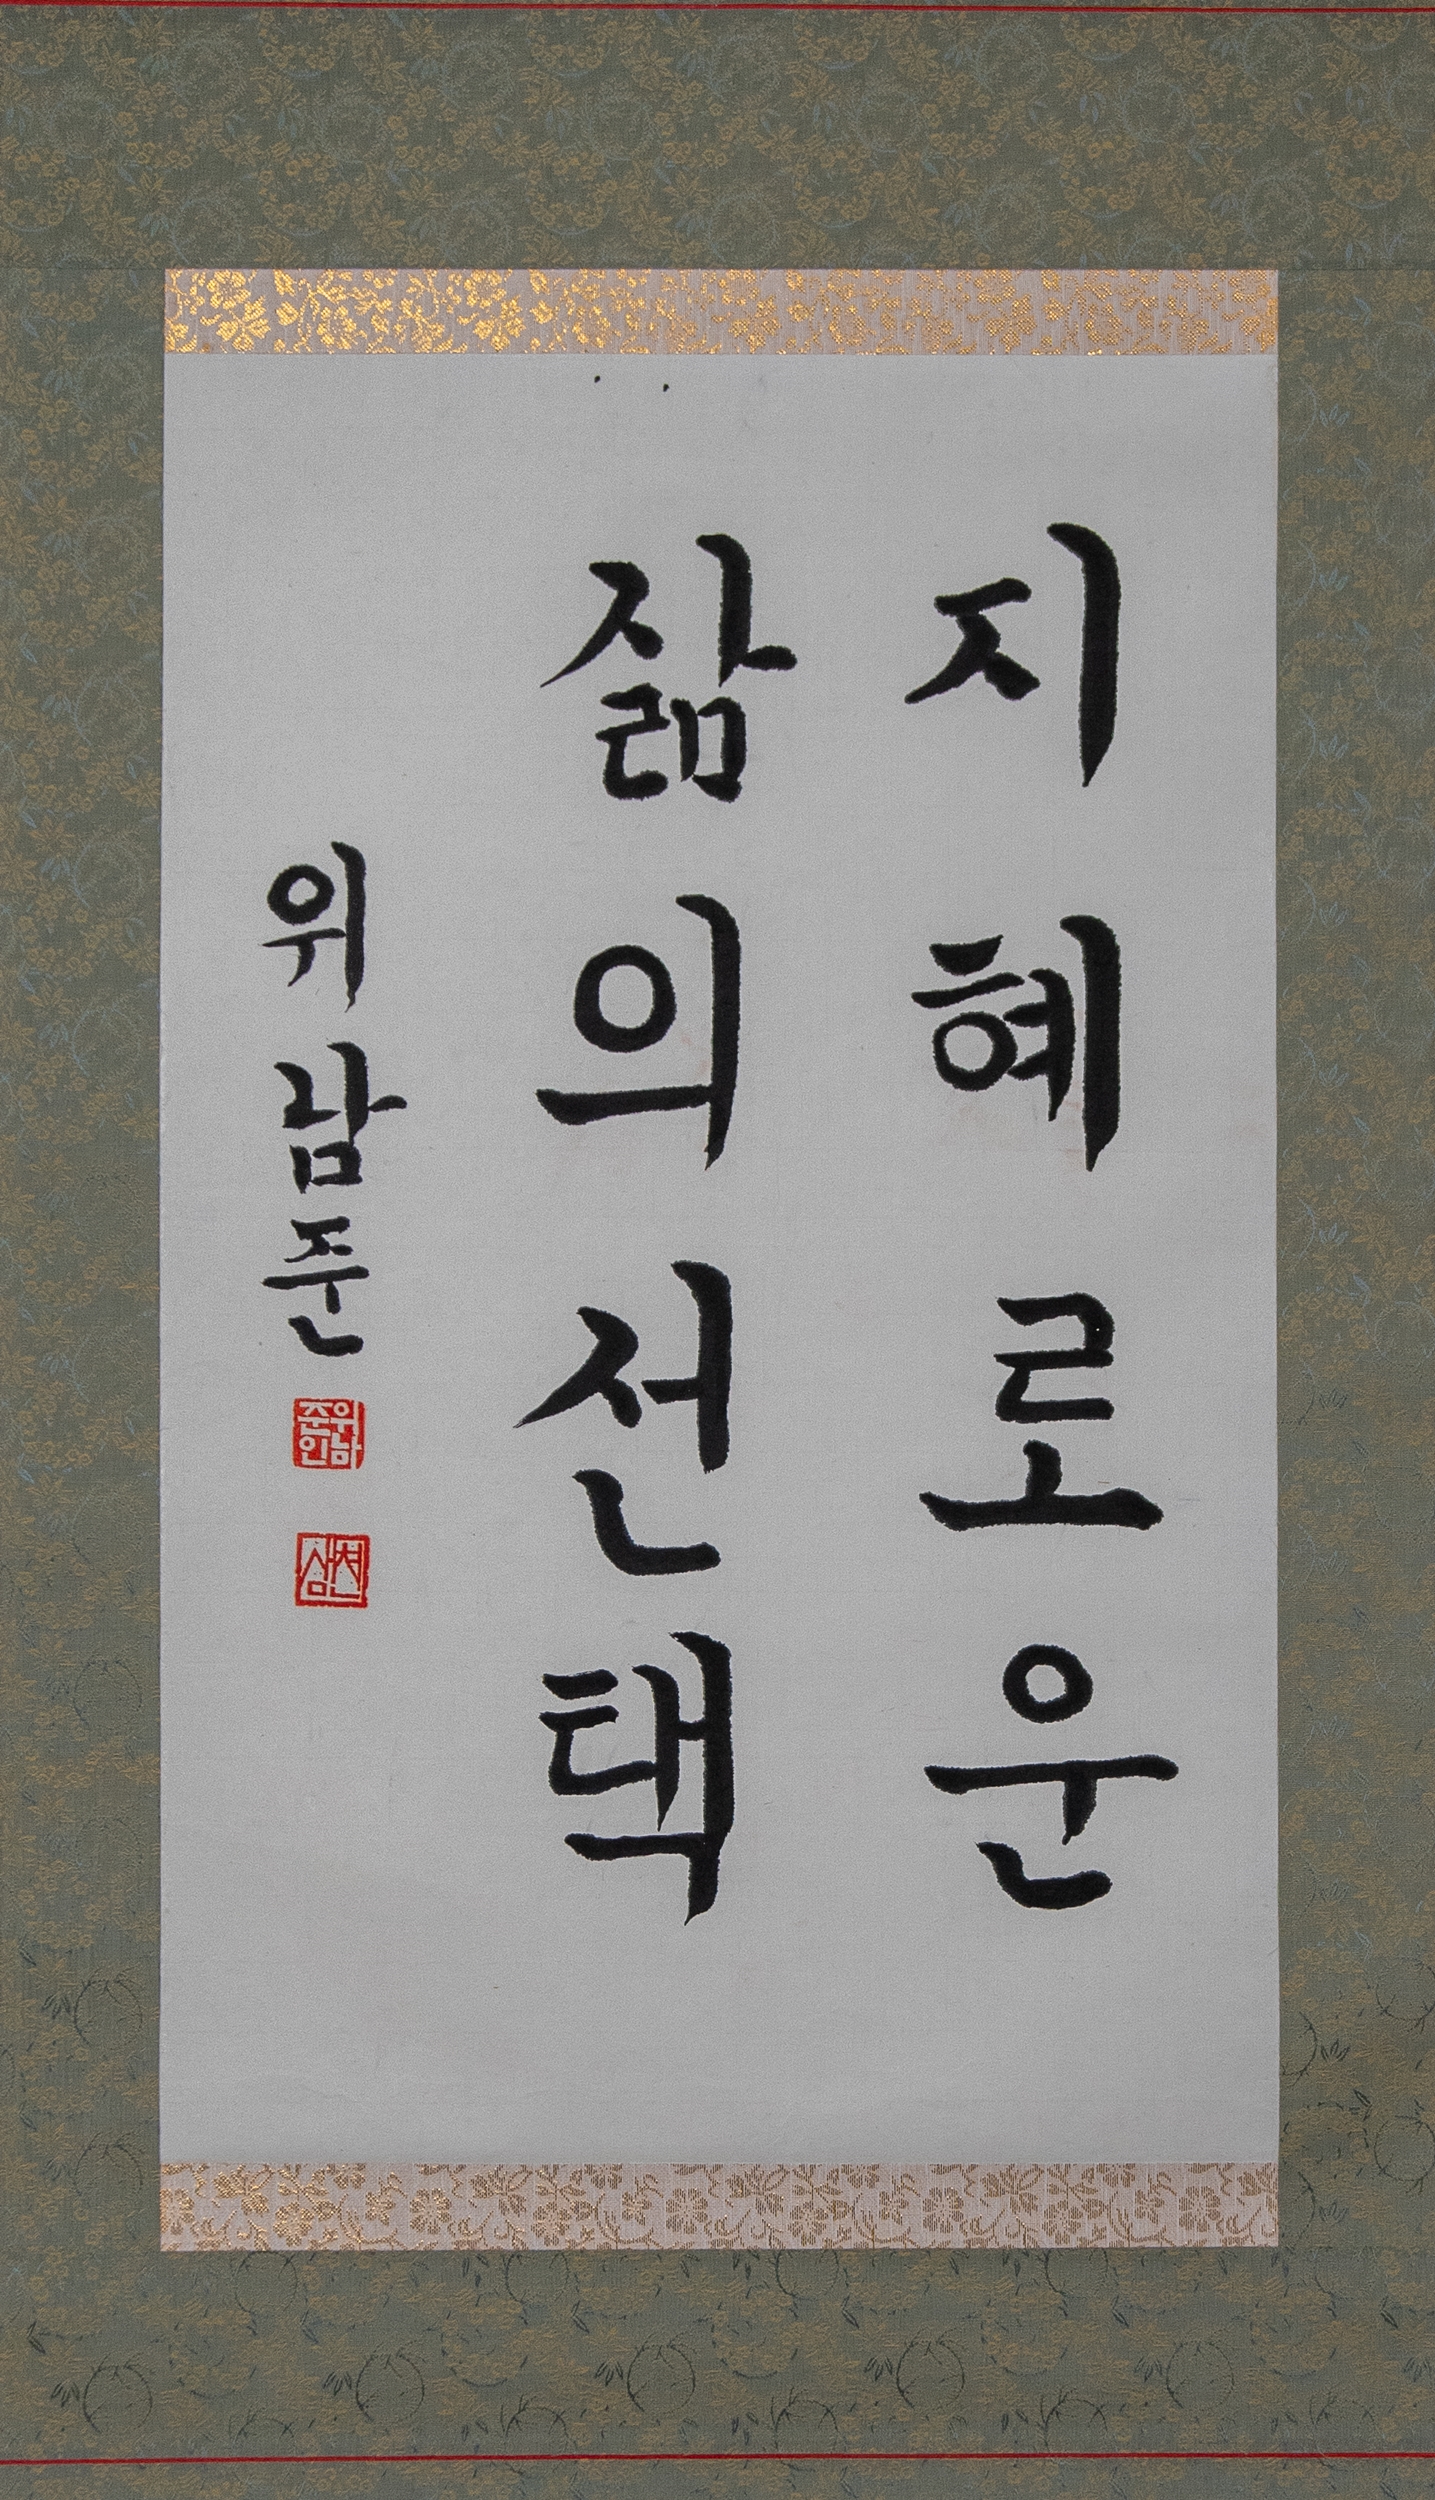 지혜로운
삶의선택
위남준
위남준인
현삼